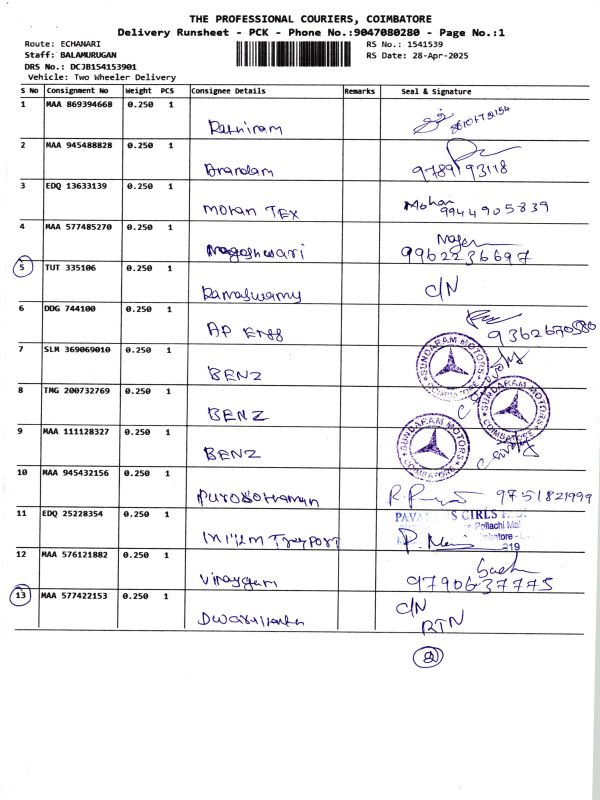 THE PROFESSIONAL COURIERS, COIMBATORE
Delivery Runsheet - PCK - Phone No.:9047080280 - Page No.:1
Route: ECHANARI RS No.: 1541539
Staff: BALAMURUGAN RS Date: 28-Apr-2025
DRS No.: DCJB154153901
Vehicle: Two Wheeler Delivery
S No Consignment No Weight PCS Consignee Details Remarks Seal & Signature
1 MAA 869394668 0.250 1
2 MAA 945488828 0.250 1
9789193118
3 EDQ 13633139 0.250 1
Mohan TEX Mohan 9944905839
4 MAA 577485270 0.250 1
Nageshwari 9962236697
5 TUT 335106 0.250 1
Ramaswamy C/N
6 DDG 744100 0.250 1
AP Engg
7 SLM 369069010 0.250 1
BENZ SUNDARAM MOTORS COIMBATORE
8 TMG 200732769 0.250 1
BENZ SUNDARAM MOTORS COIMBATORE
9 MAA 111128327 0.250 1
BENZ SUNDARAM MOTORS COIMBATORE
10 MAA 945432156 0.250 1
Purosothaman 9751821999
11 EDQ 25228354 0.250 1
GIRLS
Pollachi
12 MAA 576121882 0.250 1
9790637775
13 MAA 577422153 0.250 1
C/N
RTN